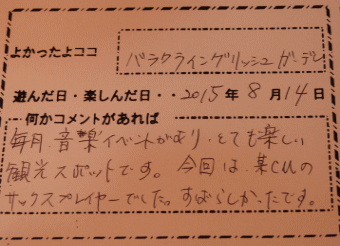 よかったよココ
バラクライングリッシュガーデン
遊んだ日・楽しんだ日・・2015年8月14日
何かコメントがあれば
毎月、音楽イベントがあり、とても楽しい
観光スポットです。今回は、某CMの
サックスプレイヤーでした。すばらしかったです。